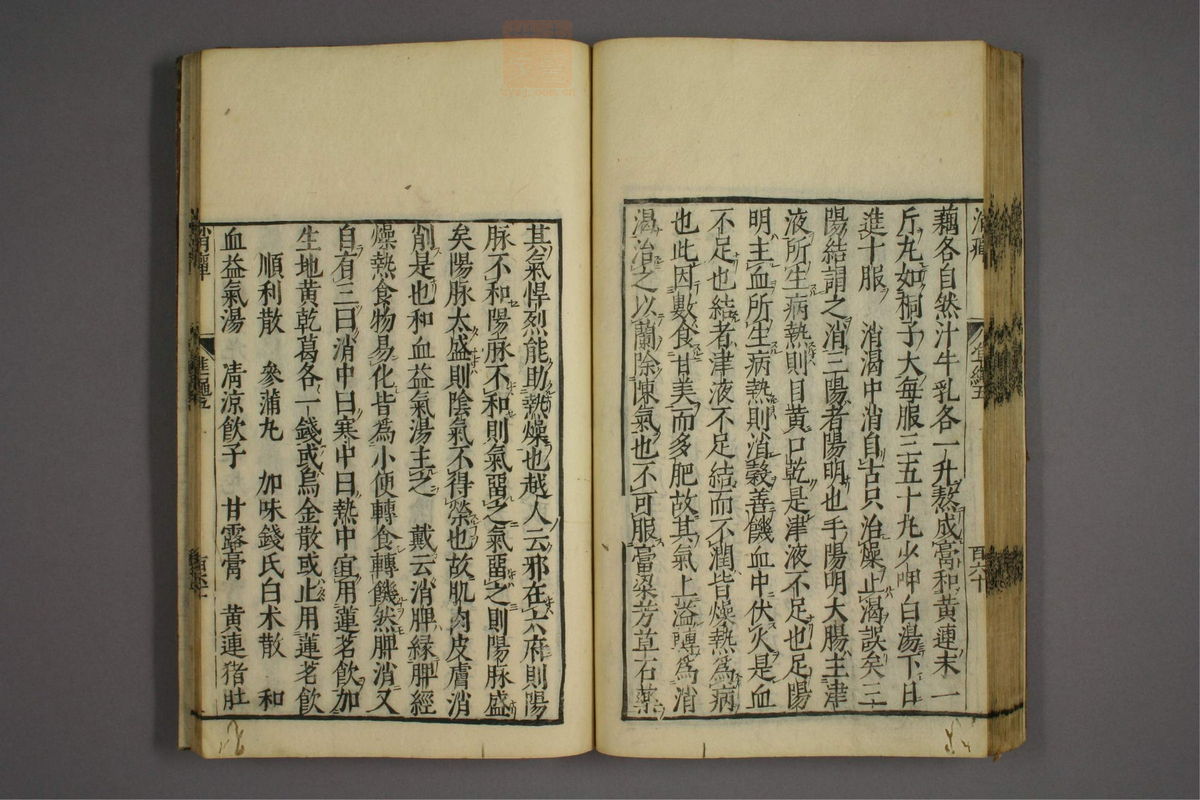 藕各自然汁牛乳各一升熬成膏和黄連末一
斤丸如桐子大每服三五十丸少呷白湯下日
進十服　消渇中消自古只治燥止渇誤矣三
陽結謂之消三陽者陽明也手陽明大腸主津
液所生病熱則目黄口乾是津液不足也足陽
明主血所生病熱則消穀善饑血中伏火是血
不足也結者津液不足結而不潤皆燥熱爲病
也此因數食甘美而多肥故其氣上溢轉爲消
渇治之以蘭除陳氣也不可服膏粱芳草石藥
其氣悍烈能助熱燥也越人云邪在六府則陽
脉不和陽脉不和則氣留之氣留之則陽脉盛
矣陽脉太盛則陰氣不得榮也故肌肉皮膚消
削是也和血益氣湯主之　戴云消脾緣脾經
燥熱食物易化皆爲小便轉食轉饑然脾消又
自有三曰消中曰寒中曰熱中宜用蓮茗飲加
生地黄乾葛各一錢或烏金散或止用蓮茗飲
順利散　參蒲丸　加味錢氏白术散　和
血益氣湯　清涼飲子　甘露膏　黄連猪肚